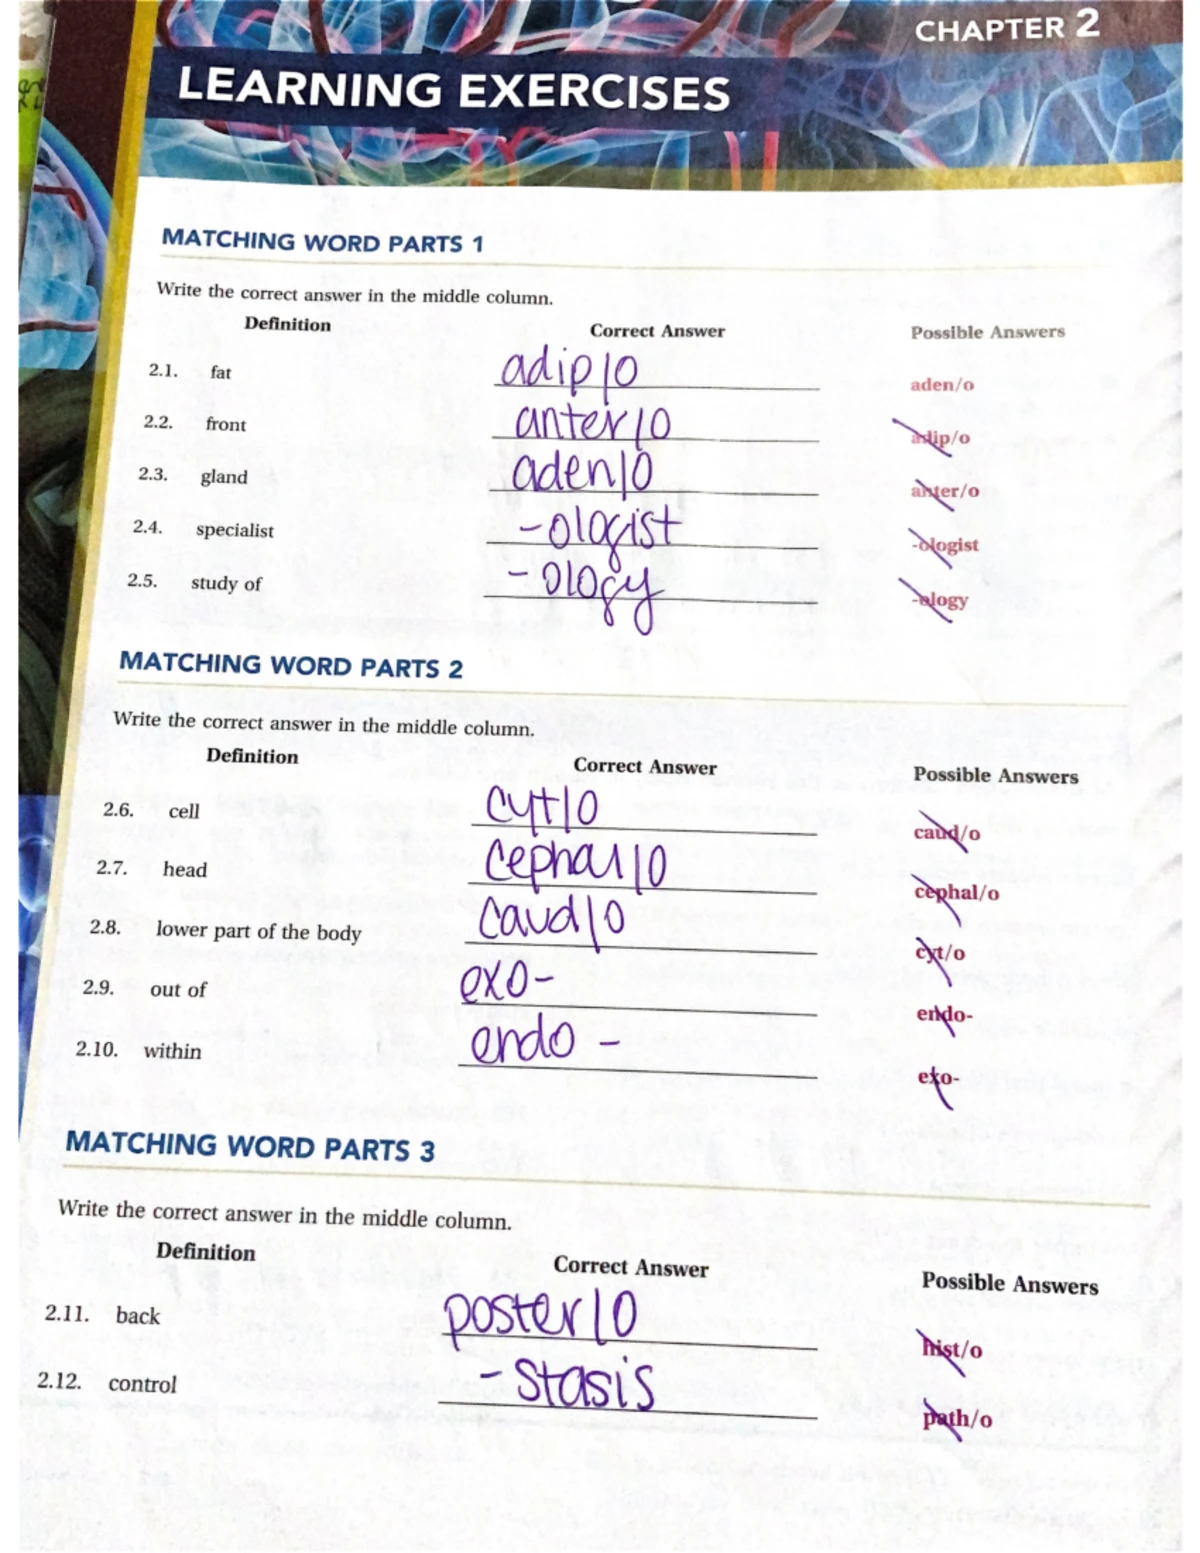 CHAPTER 2
LEARNING EXERCISES
MATCHING WORD PARTS 1
Write the correct answer in the middle column.
Definition Correct Answer Possible Answers
2.1. fat adip/o aden/o
2.2. front anter/o adip/o
2.3. gland aden/o anter/o
2.4. specialist -ologist -ologist
2.5. study of -ology -ology
MATCHING WORD PARTS 2
Write the correct answer in the middle column.
Definition Correct Answer Possible Answers
2.6. cell cyt/o caud/o
2.7. head cephal/o cephal/o
2.8. lower part of the body caud/o cyt/o
2.9. out of exo- endo-
2.10. within endo- exo-
MATCHING WORD PARTS 3
Write the correct answer in the middle column.
Definition Correct Answer Possible Answers
2.11. back poster/o hist/o
2.12. control -stasis path/o